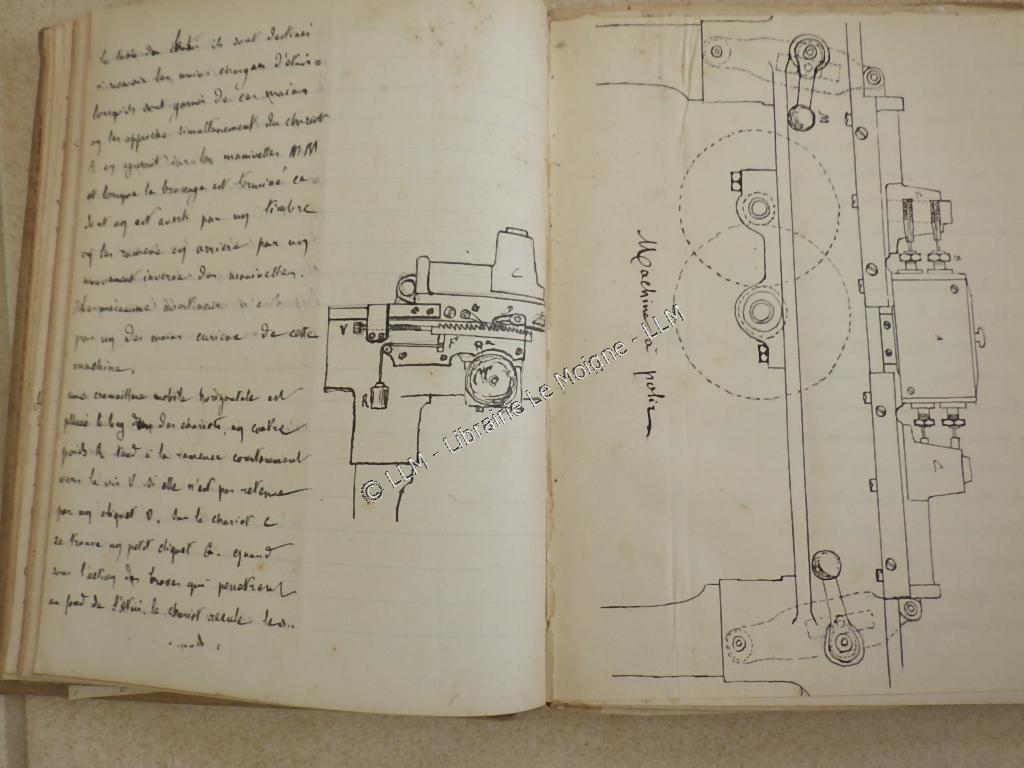 ils sont destinés
à recevoir les mains chargées d'étuis.
Lorsqu'ils sont garnis de ces mains
on les approche simultanément du chariot
A en agissant sur les manivelles MM
et lorsque le brossage est terminé ce
dont on est averti par un timbre
on les ramène en arrière par un
mouvement inverse des manivelles.
Le mécanisme
pas un des moins curieux de cette
machine.
une cremaillère mobile horizontale est
placée le long des chariots, un contre
poids R tend à la ramener constamment
vers la vis V si elle n'est pas retenue
par un cliquet D. Sur le chariot C
se trouve un petit cliquet G. quand
sous l'action des brosses qui pénètrent
au fond de l'étui le chariot recule les
C
V
F
D
R
M
Machine à polir
M
A
C
© LLM - Librairie Le Moigne - LLM